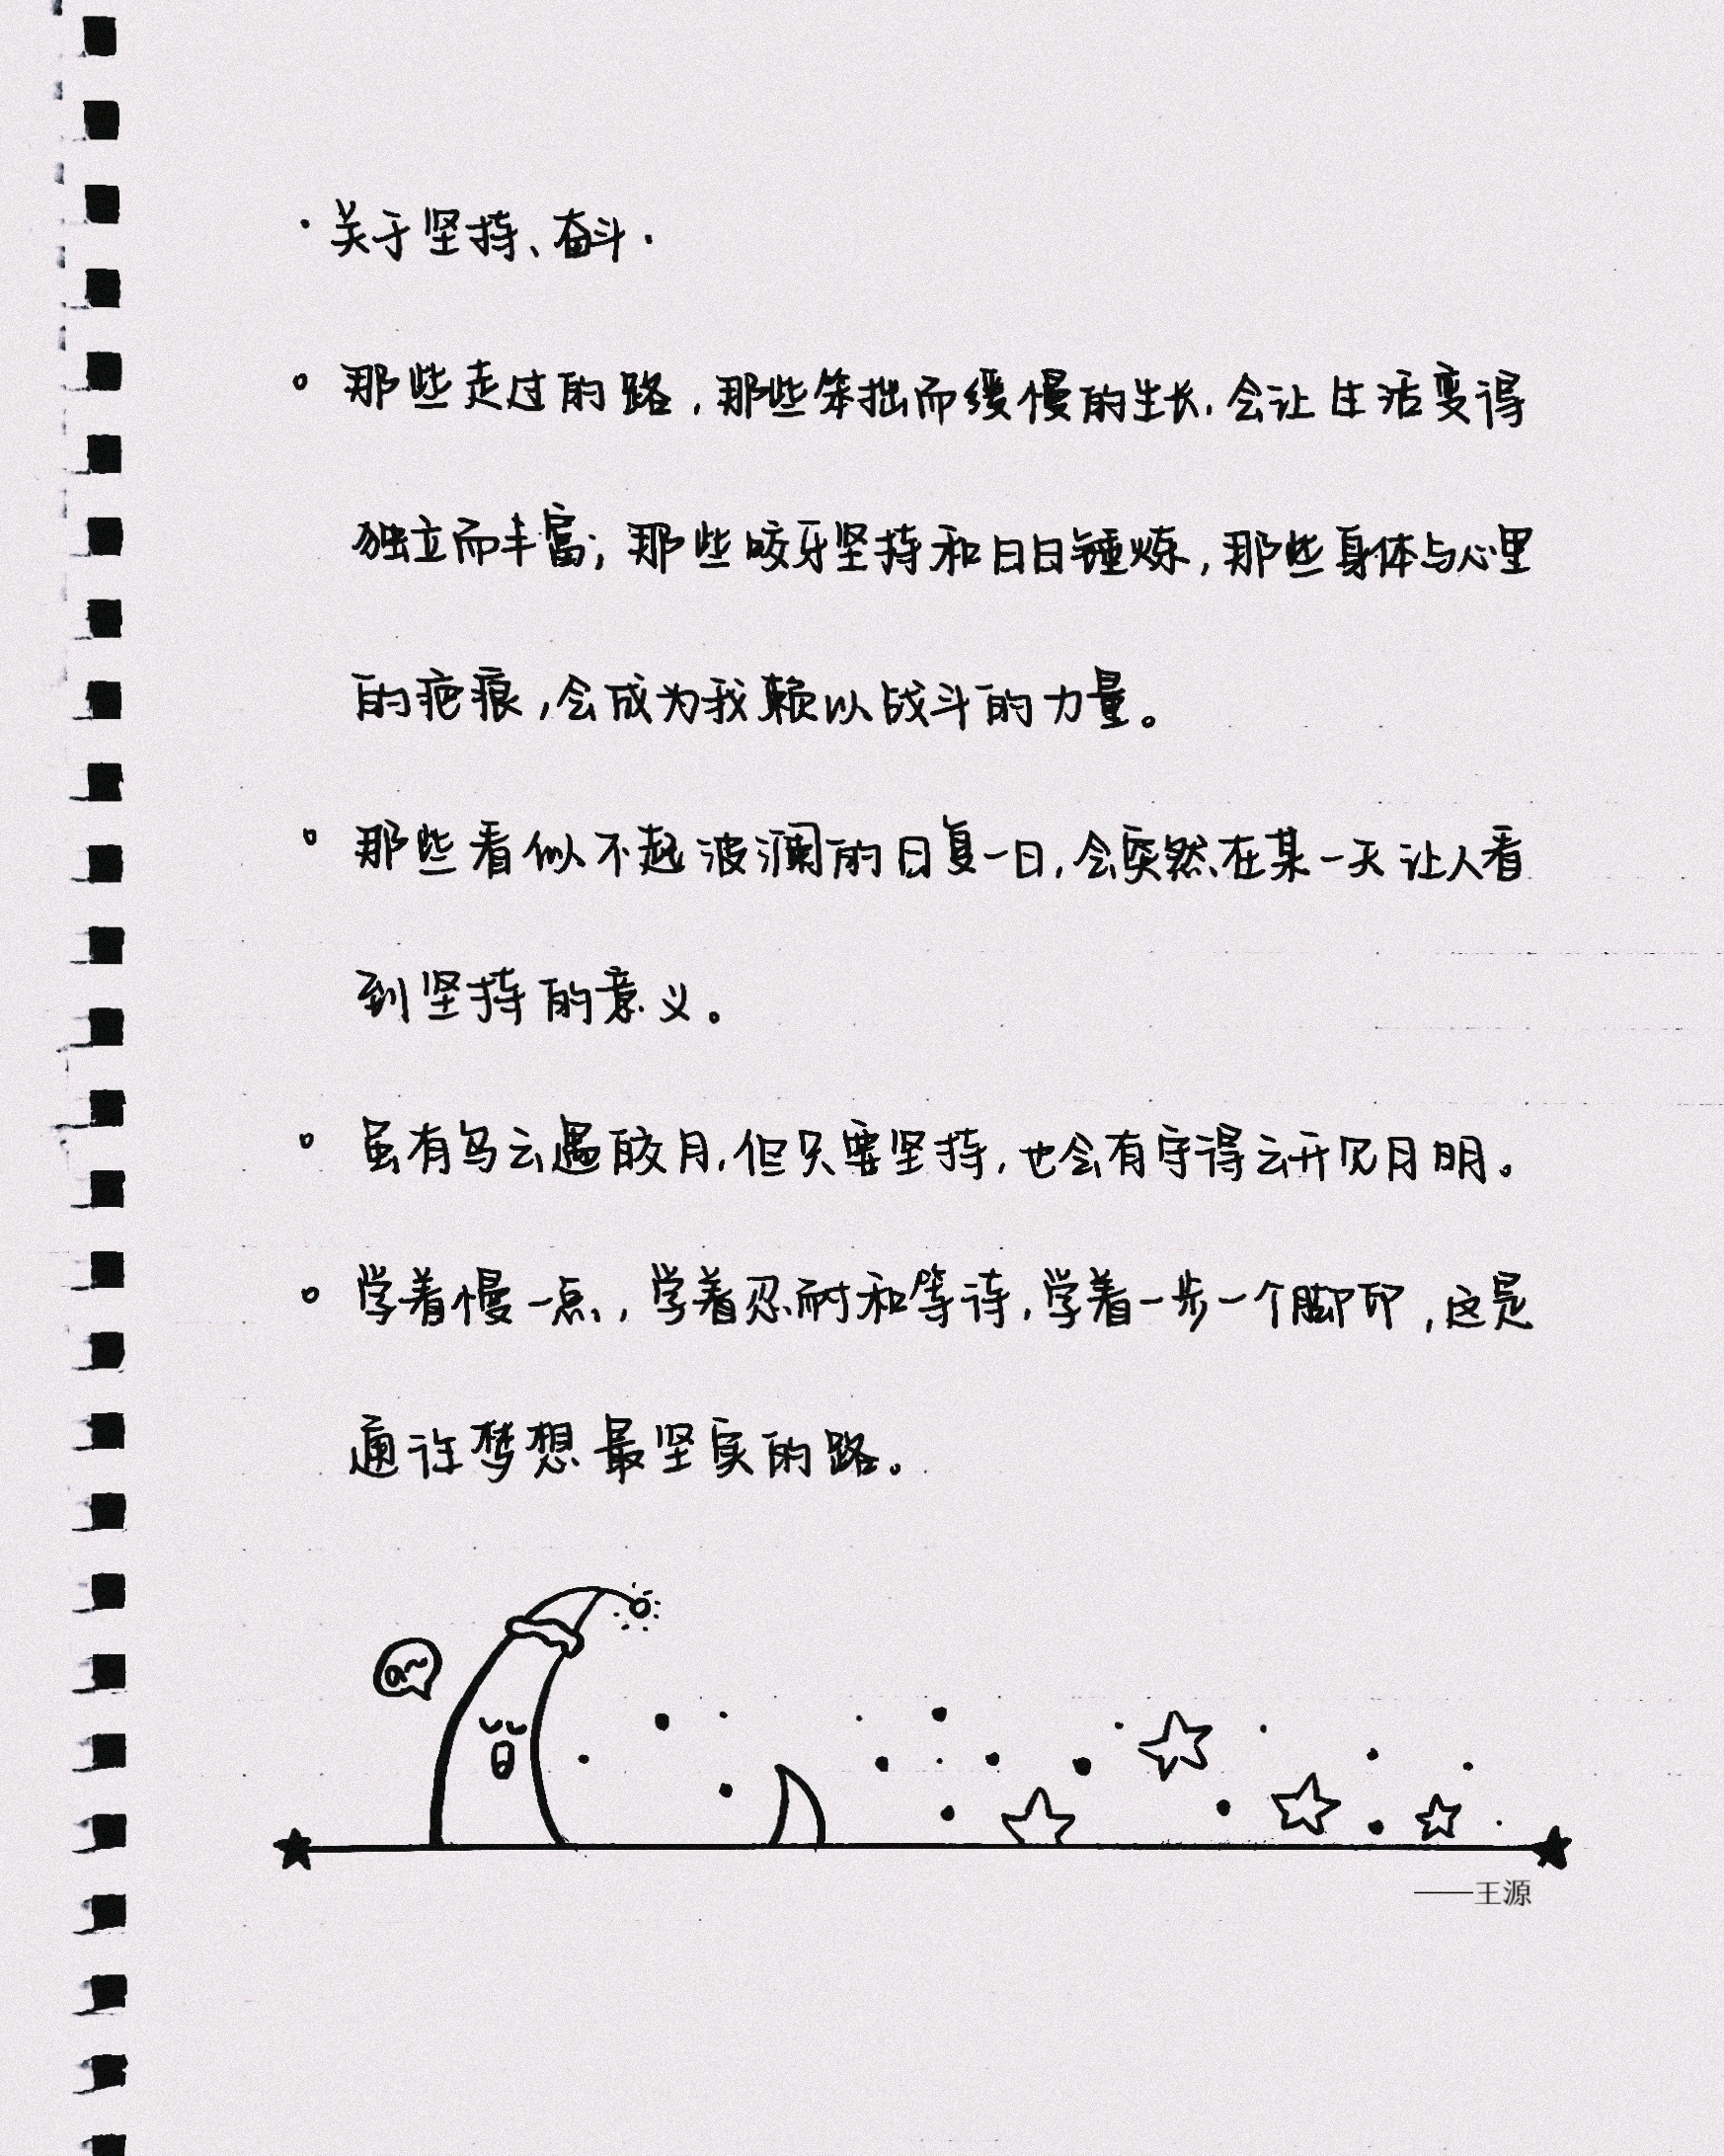 ·关于坚持、奋斗·
。那些走过的路，那些笨拙而缓慢的生长，会让生活变得
独立而丰富；那些咬牙坚持和日日锤炼，那些身体与心里
的疤痕，会成为我赖以战斗的力量。
。那些看似不起波澜的日复一日，会突然在某一天让人看
到坚持的意义。
。虽有乌云遇皎月，但只要坚持，也会有守得云开见月明。
。学着慢一点，学着忍耐和等待，学着一步一个脚印，这是
通往梦想最坚实的路。
a~
——王源